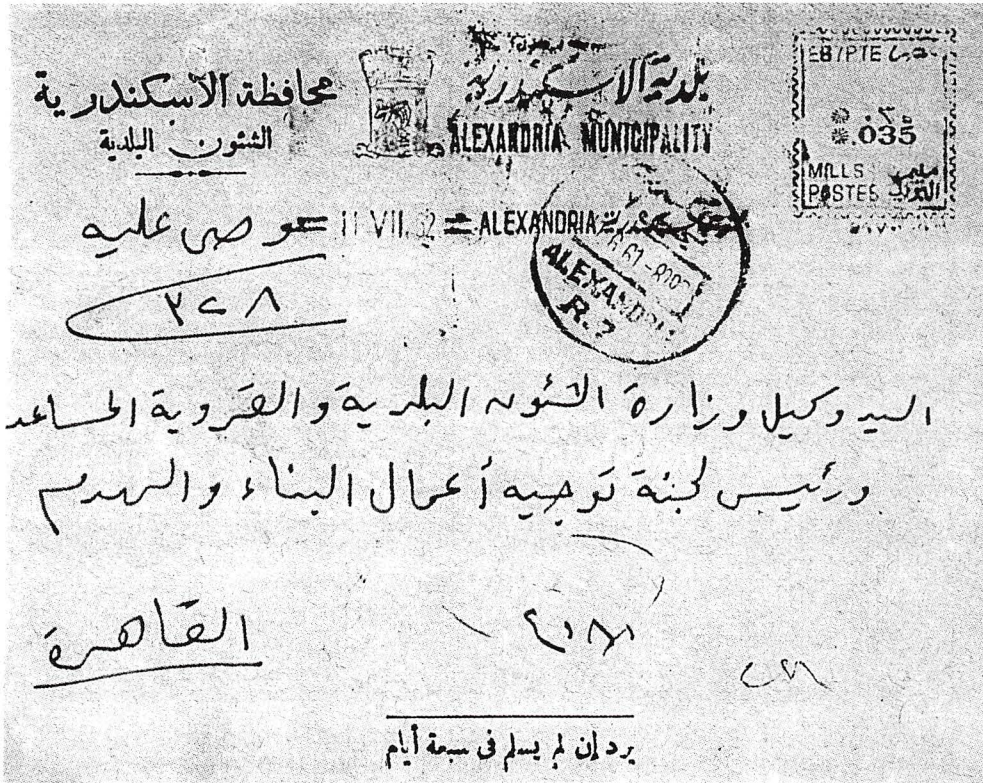 محافظة الأسكندرية
الشئون البلدية
بلدية الاسكندرية
ALEXANDRIA MUNICIPALITY
EGYPTE مصر
.٠٣٥
.035
MILLS مليم
POSTES البريد
موصى عليه
11 VII. 62 ALEXANDRIA
٣٢٨
ALEXANDRIA
R. 7
السيد وكيل وزارة الشئون البلدية والقروية المساعد
ورئيس لجنة توجيه أعمال البناء والهدم
القاهرة
يرد إن لم يسلم فى سبعة أيام